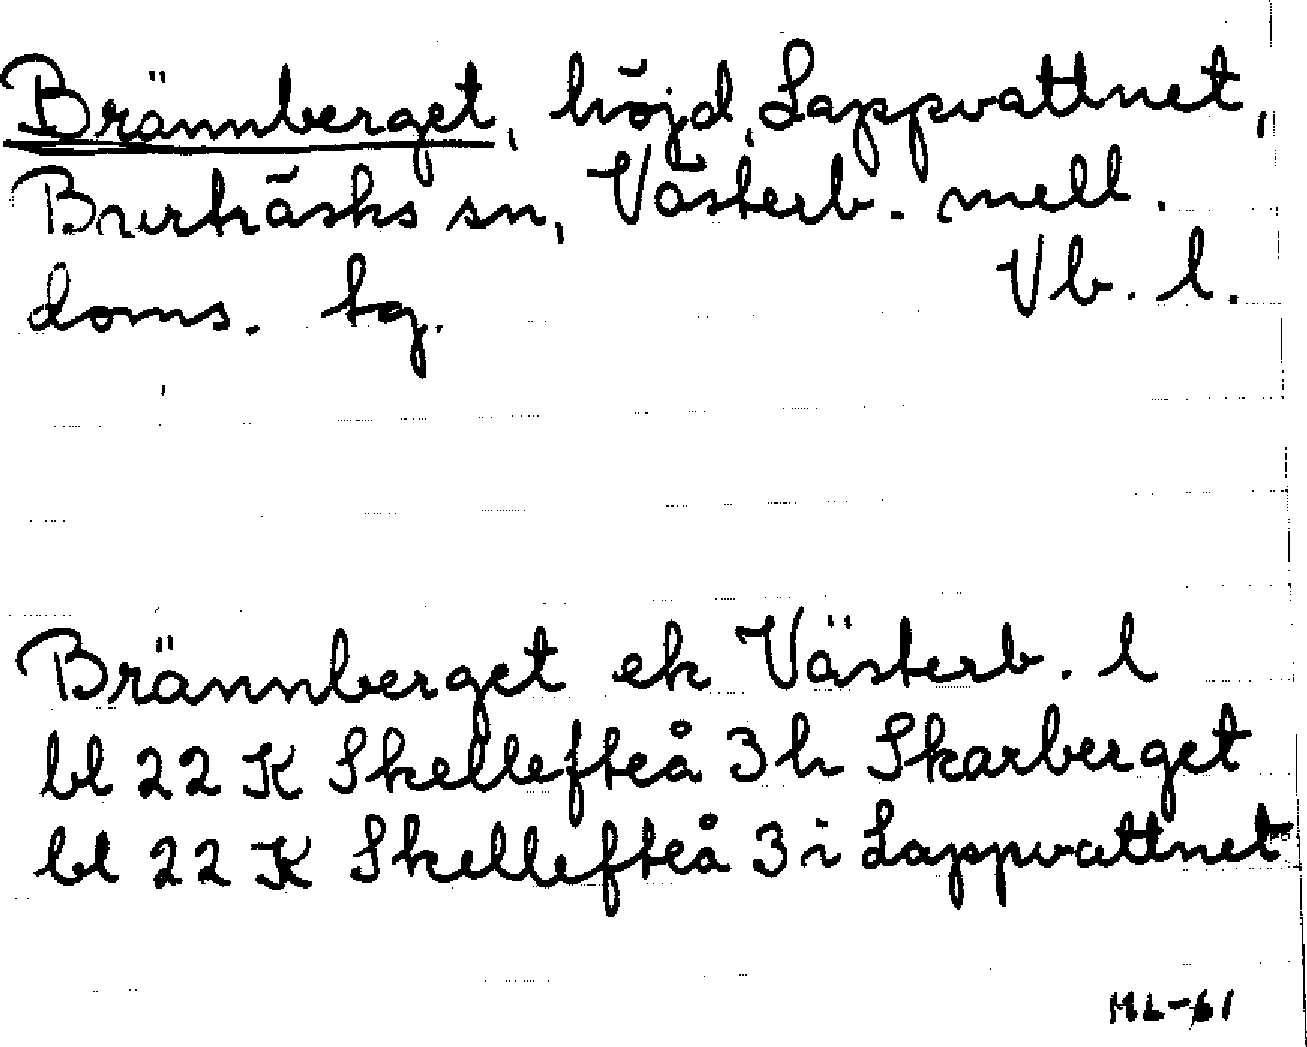 Brännberget, höjd, Lappvattnet,
Burträsks sn, Västerb. mell.
doms. tg. Vb. l.
Brännberget ek Västerb. l
bl 22 K Skellefteå 3h Skarberget
bl 22 K Skellefteå 3i Lappvattnet
ML-61